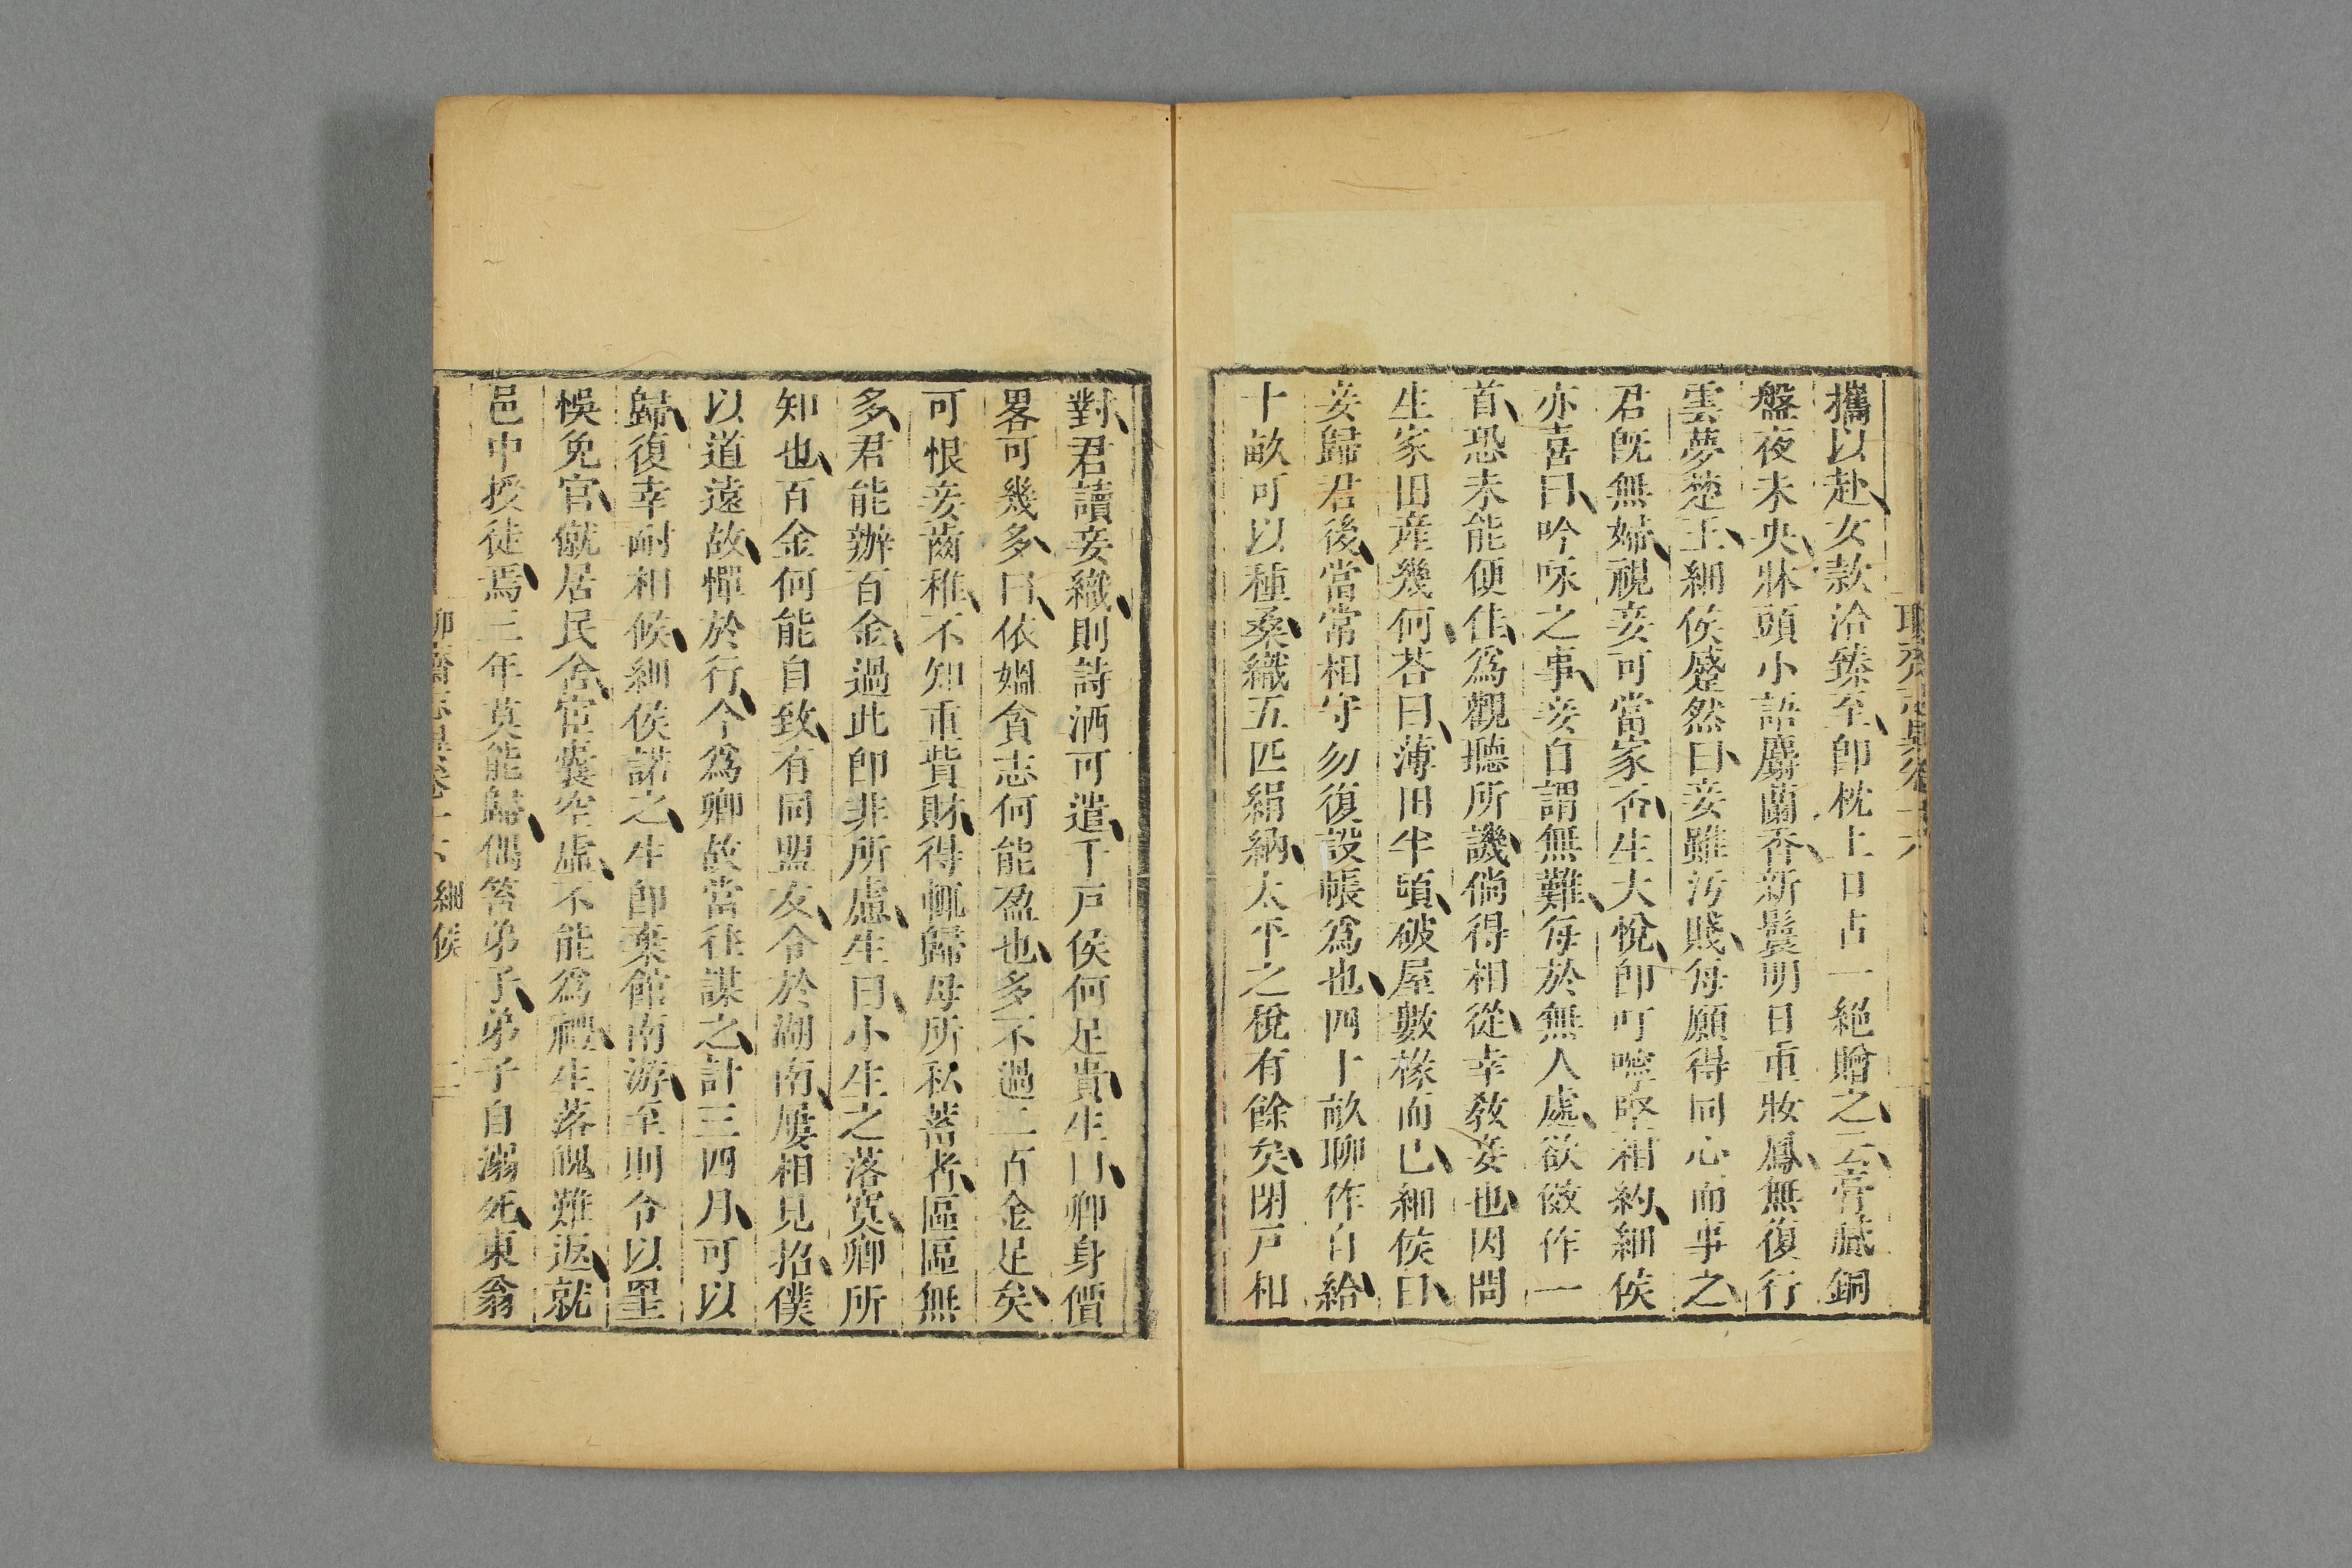 聊齋志異卷十六
攜以赴女款洽臻至卽枕上口占一絕贈之云膏膩銅
盤夜未央牀頭小語麝蘭香新鬟明日重妝鳳無復行
雲夢楚王細侯蹙然曰妾雖汚賤每願得同心而事之
君旣無婦視妾可當家否生大悅卽叮嚀堅相約細侯
亦喜曰吟咏之事妾自謂無難每於無人處欲傚作一
首恐未能便佳爲觀聽所譏倘得相從幸敎妾也因問
生家田産幾何荅曰薄田半頃破屋數椽而已細侯曰
妾歸君後當常相守勿復設帳爲也四十畝聊作自給
十畝可以種桑織五匹絹納太平之稅有餘矣閉戸相
對君讀妾織則詩酒可遣千戸侯何足貴生曰卿身價
畧可幾多曰依媼貪志何能盈也多不過二百金足矣
可恨妾齒稚不知重貲財得輒歸母所私蓄者區區無
多君能辦百金過此卽非所慮生曰小生之落寞卿所
知也百金何能自致有同盟友令於湖南屢相見招僕
以道遠故憚於行今爲卿故當往謀之計三四月可以
歸復幸耐相候細侯諾之生卽棄館南游至則令以罣
悞免官僦居民舍宦囊空虛不能爲禮生落魄難返就
邑中授徒焉三年莫能歸偶笞弟子弟子自溺死東翁
聊齋志異卷十六 細侯 二